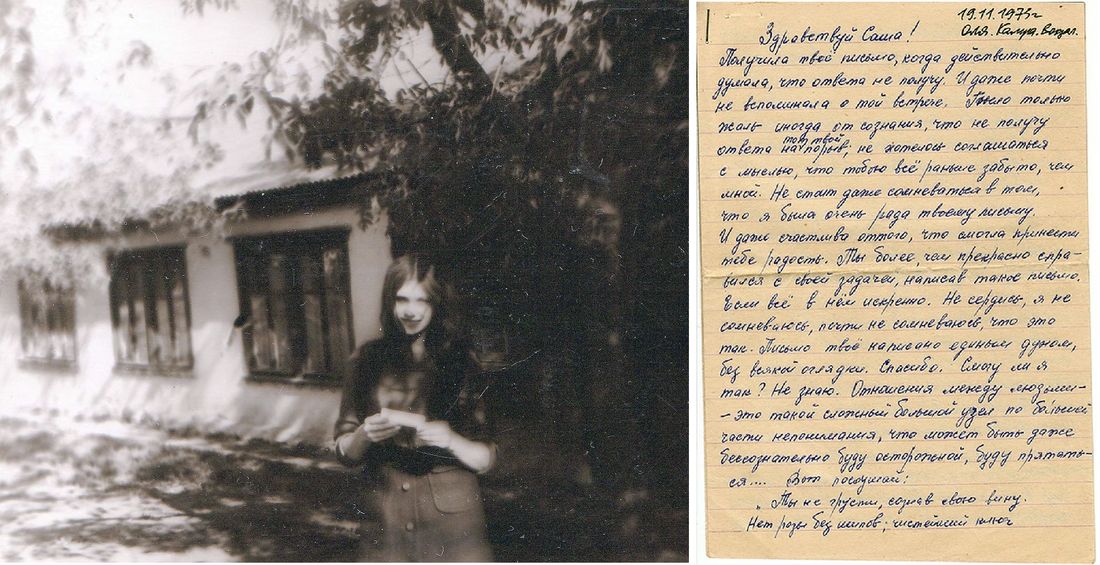 19.11.1975г
Оля. Калуга.
Здравствуй Саша!
Получила твоё письмо, когда действительно
думала, что ответа не получу. И даже почти
не вспоминала о той встрече. Было только
жаль иногда от сознания, что не получу
ответа на тот твой порыв, не хотелось соглашаться
с мыслью, что тобою всё раньше забыто, чем
мной. Не стоит даже сомневаться в том,
что я была очень рада твоему письму.
И даже счастлива оттого, что смогла принести
тебе радость. Ты более, чем прекрасно спра-
вился с своей задачей, написав такое письмо.
Если всё в нём искренно. Не сердись, я не
сомневаюсь, почти не сомневаюсь, что это
так. Письмо твоё написано единым духом,
без всякой оглядки. Спасибо. Смогу ли я
так? Не знаю. Отношения между людьми-
- это такой сложный большой узел по большей
части непонимания, что может быть даже
бессознательно буду осторожной, буду прятать-
ся.... Вот послушай:
„Ты не грусти, сознав свою вину.
Нет розы без шипов; чистейший ключ